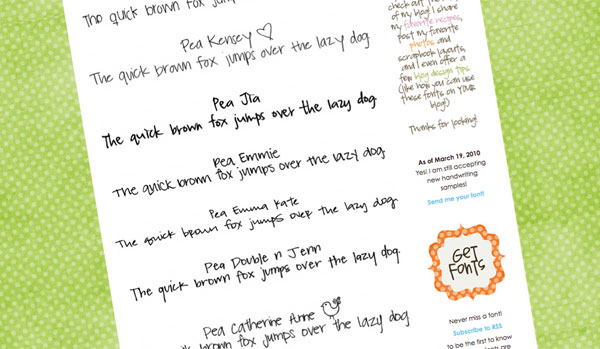 The quick brown fox jumps over
Pea Kensey
The quick brown fox jumps over the lazy dog
Pea Jia
The quick brown fox jumps over the lazy dog
Pea Emmie
The quick brown fox jumps over the lazy dog
Pea Emma Kate
The quick brown fox jumps over the lazy dog
Pea Double n Jenn
The quick brown fox jumps over the lazy dog
Pea Catherine Anne
quick brown fox jumps over the lazy dog
check out
of my blog! I share
my favorite recipes,
post my favorite
photos and
scrapbook layouts,
and I even offer a
few blog design tips
(like how you can use
these fonts on YOUR
blog!)
Thanks for looking!
As of March 19, 2010
Yes! I am still accepting
new handwriting
samples!
Send me your font!
GET
FONTS
Never miss a font!
Subscribe to RSS
to be the first to know
are